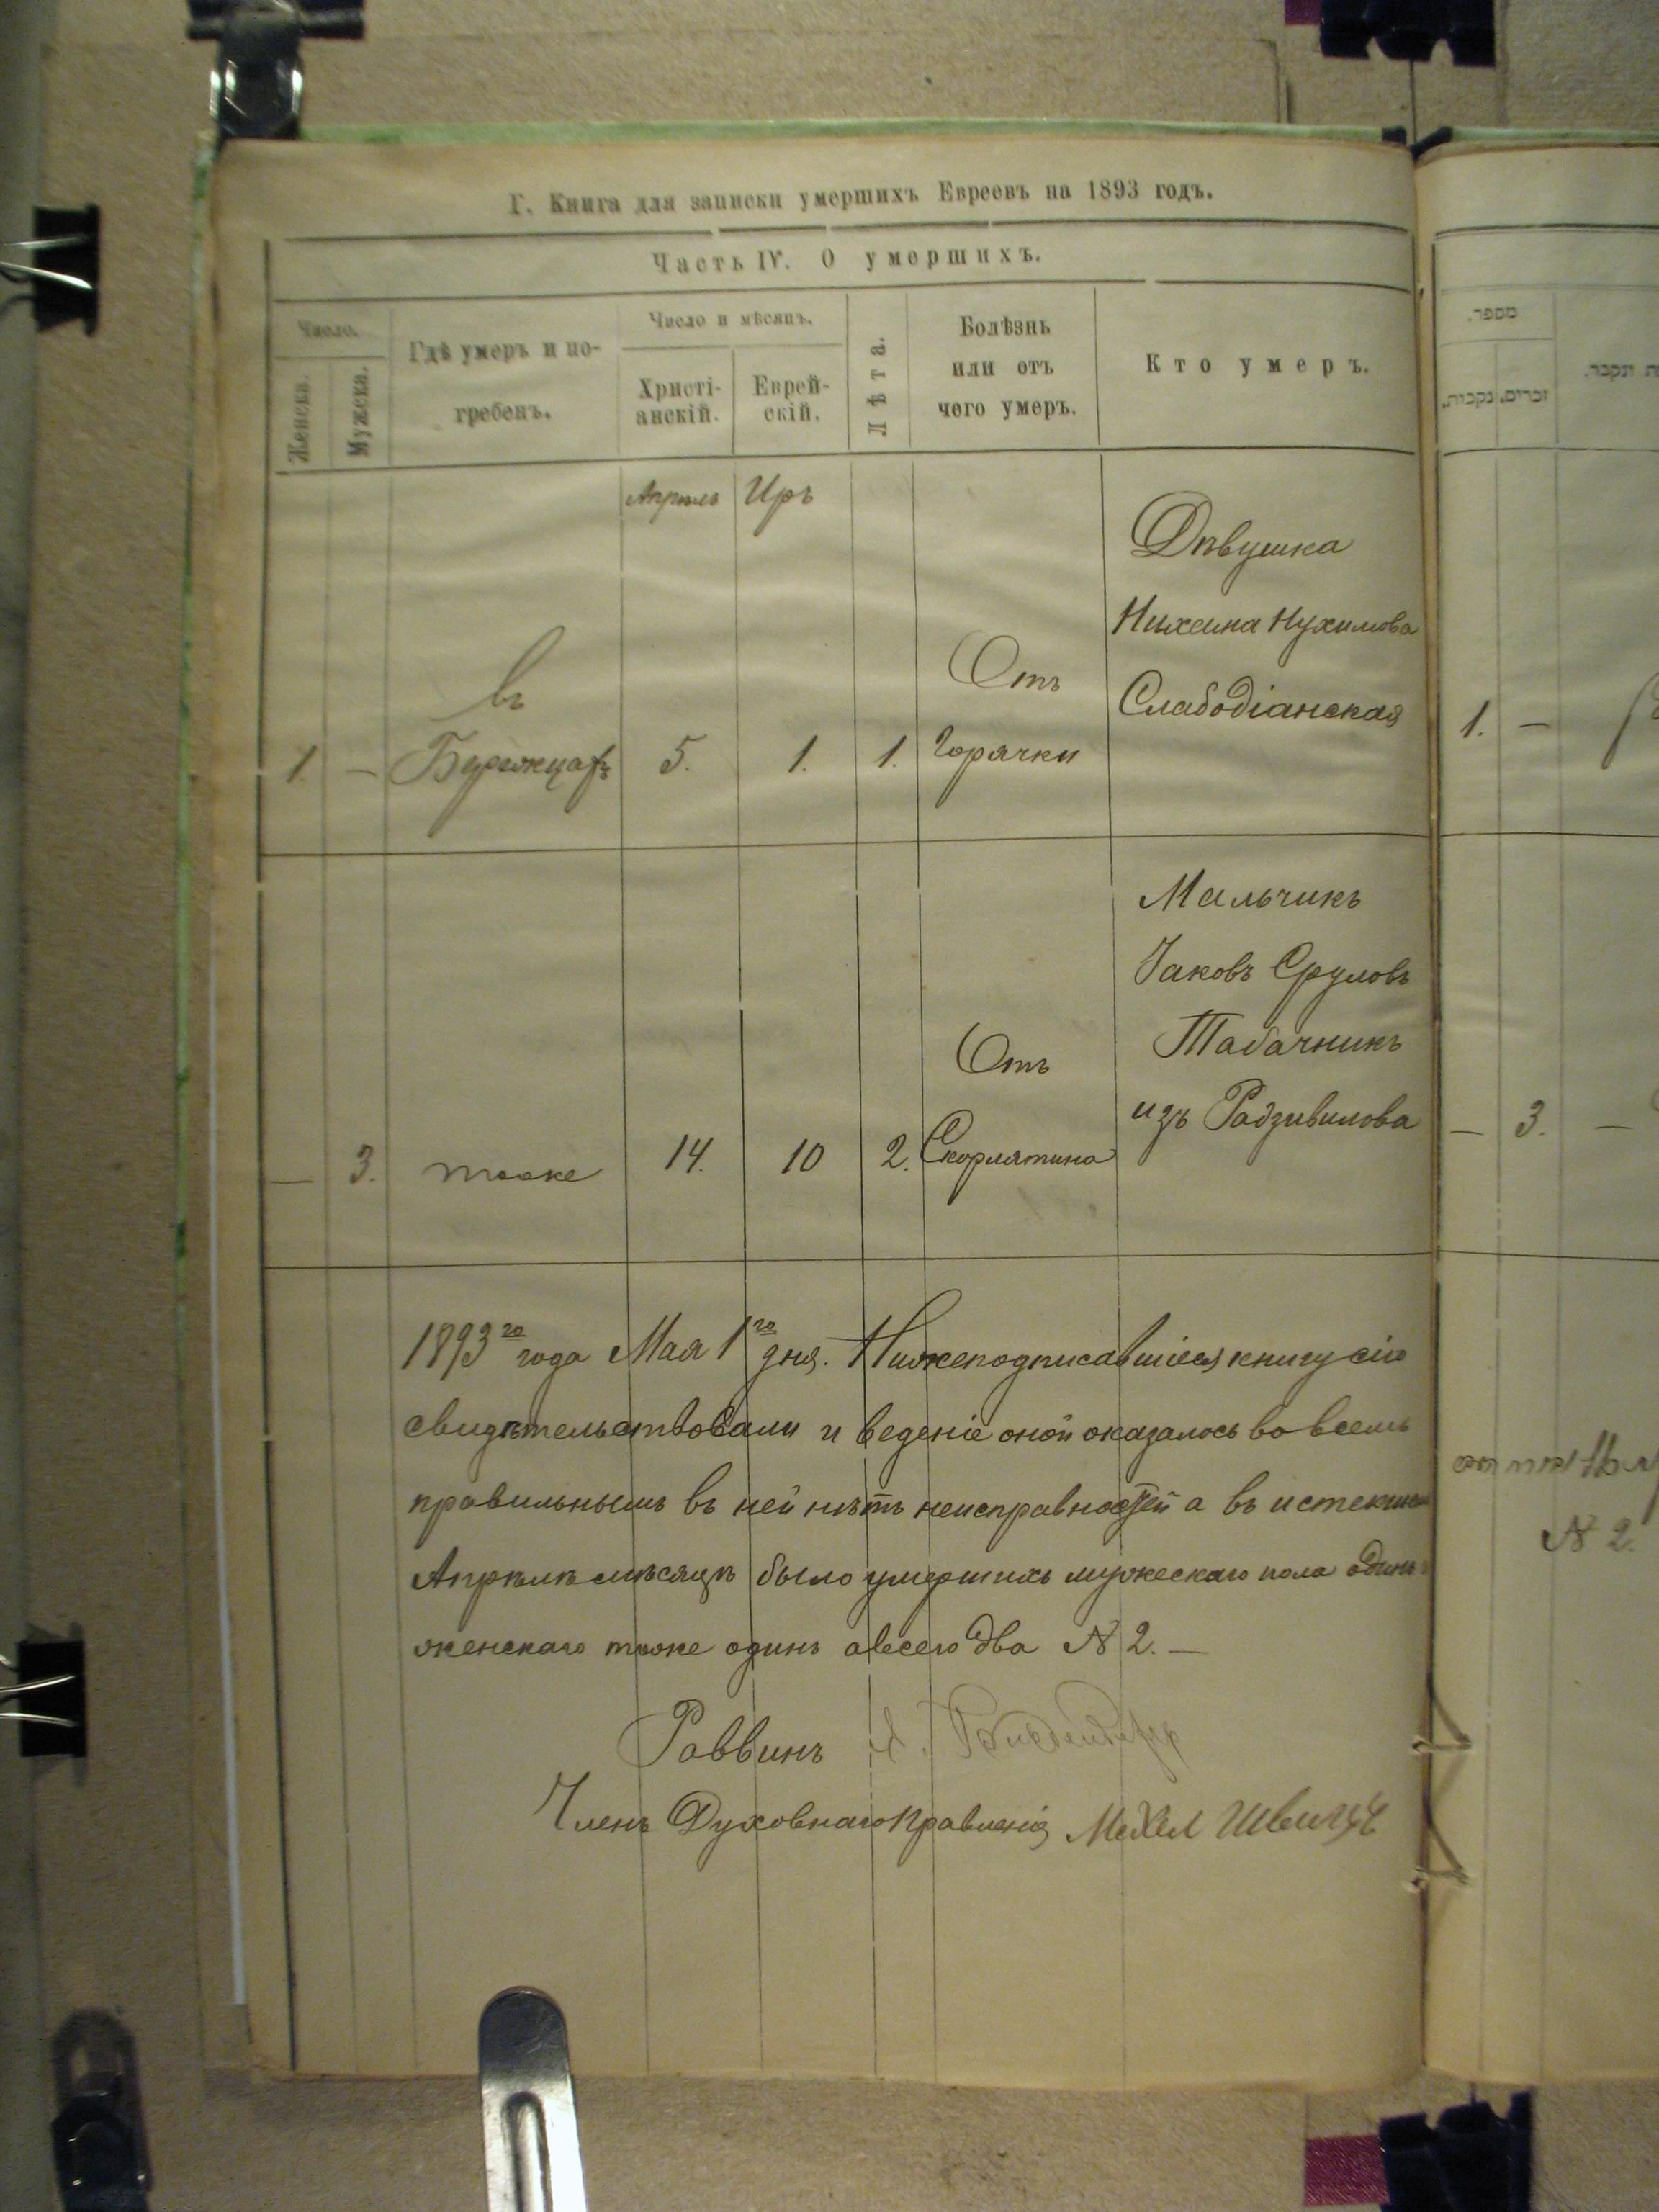 Г. Книга для записки умершихъ Евреевъ на 1893 годъ.
Часть IV. О умершихъ.
Число.
Женска.
Мужска.
Гдѣ умеръ и по-
гребенъ.
Число и мѣсяцъ.
Христі-
анскій.
Еврей-
скій.
Лѣта.
Болѣзнь
или отъ
чего умеръ.
Кто умеръ.
מספר.
זכרים, נקבות,
ונקבר.
Апрѣль Иръ
Дѣвушка
Нухимова
Слабодіанская
въ
Отъ
1. — 5. 1. 1. Горячки
1. —
Мальчикъ
Іаковъ Сруловъ
Табачникъ
изъ Радзивилова
Отъ
— 3. тоже 14. 10 2. Скорлятина
— 3. —
1893го года Мая 1го дня. Нижеподписавшіеся книгу сію
свидѣтельствовали и веденіе оной оказалось во всемъ
правильнымъ въ ней нѣтъ неисправностей а въ истекшемъ
Апрѣлѣ мѣсяцѣ было умершихъ мужескаго пола одинъ
женскаго тоже одинъ а всего два N 2. —
N 2.
Раввинъ
Членъ Духовнаго Правленія